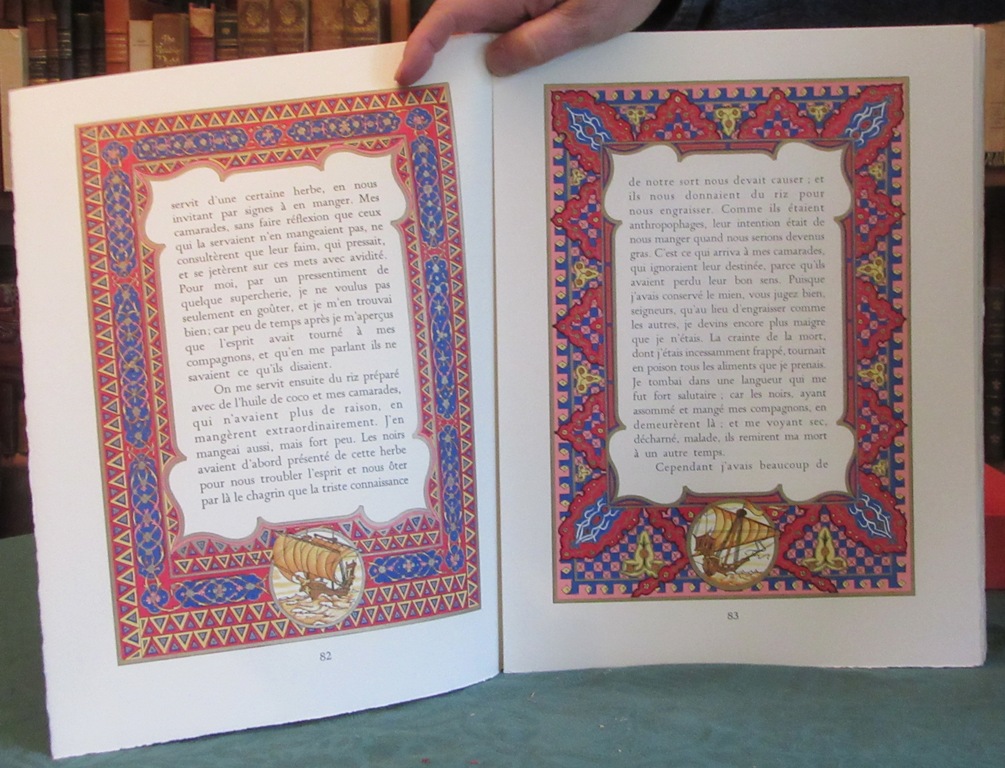 servit d'une certaine herbe, en nous
invitant par signes à en manger. Mes
camarades, sans faire réflexion que ceux
qui la servaient n'en mangeaient pas, ne
consultèrent que leur faim, qui pressait,
et se jetèrent sur ces mets avec avidité.
Pour moi, par un pressentiment de
quelque supercherie, je ne voulus pas
seulement en goûter, et je m'en trouvai
bien; car peu de temps après je m'aperçus
que l'esprit avait tourné à mes
compagnons, et qu'en me parlant ils ne
savaient ce qu'ils disaient.
On me servit ensuite du riz préparé
avec de l'huile de coco et mes camarades,
qui n'avaient plus de raison, en
mangèrent extraordinairement. J'en
mangeai aussi, mais fort peu. Les noirs
avaient d'abord présenté de cette herbe
pour nous troubler l'esprit et nous ôter
par là le chagrin que la triste connaissance
82
de notre sort nous devait causer ; et
ils nous donnaient du riz pour
nous engraisser. Comme ils étaient
anthropophages, leur intention était de
nous manger quand nous serions devenus
gras. C'est ce qui arriva à mes camarades,
qui ignoraient leur destinée, parce qu'ils
avaient perdu leur bon sens. Puisque
j'avais conservé le mien, vous jugez bien,
seigneurs, qu'au lieu d'engraisser comme
les autres, je devins encore plus maigre
que je n'étais. La crainte de la mort,
dont j'étais incessamment frappé, tournait
en poison tous les aliments que je prenais.
Je tombai dans une langueur qui me
fut fort salutaire ; car les noirs, ayant
assommé et mangé mes compagnons, en
demeurèrent là ; et me voyant sec,
décharné, malade, ils remirent ma mort
à un autre temps.
Cependant j'avais beaucoup de
83